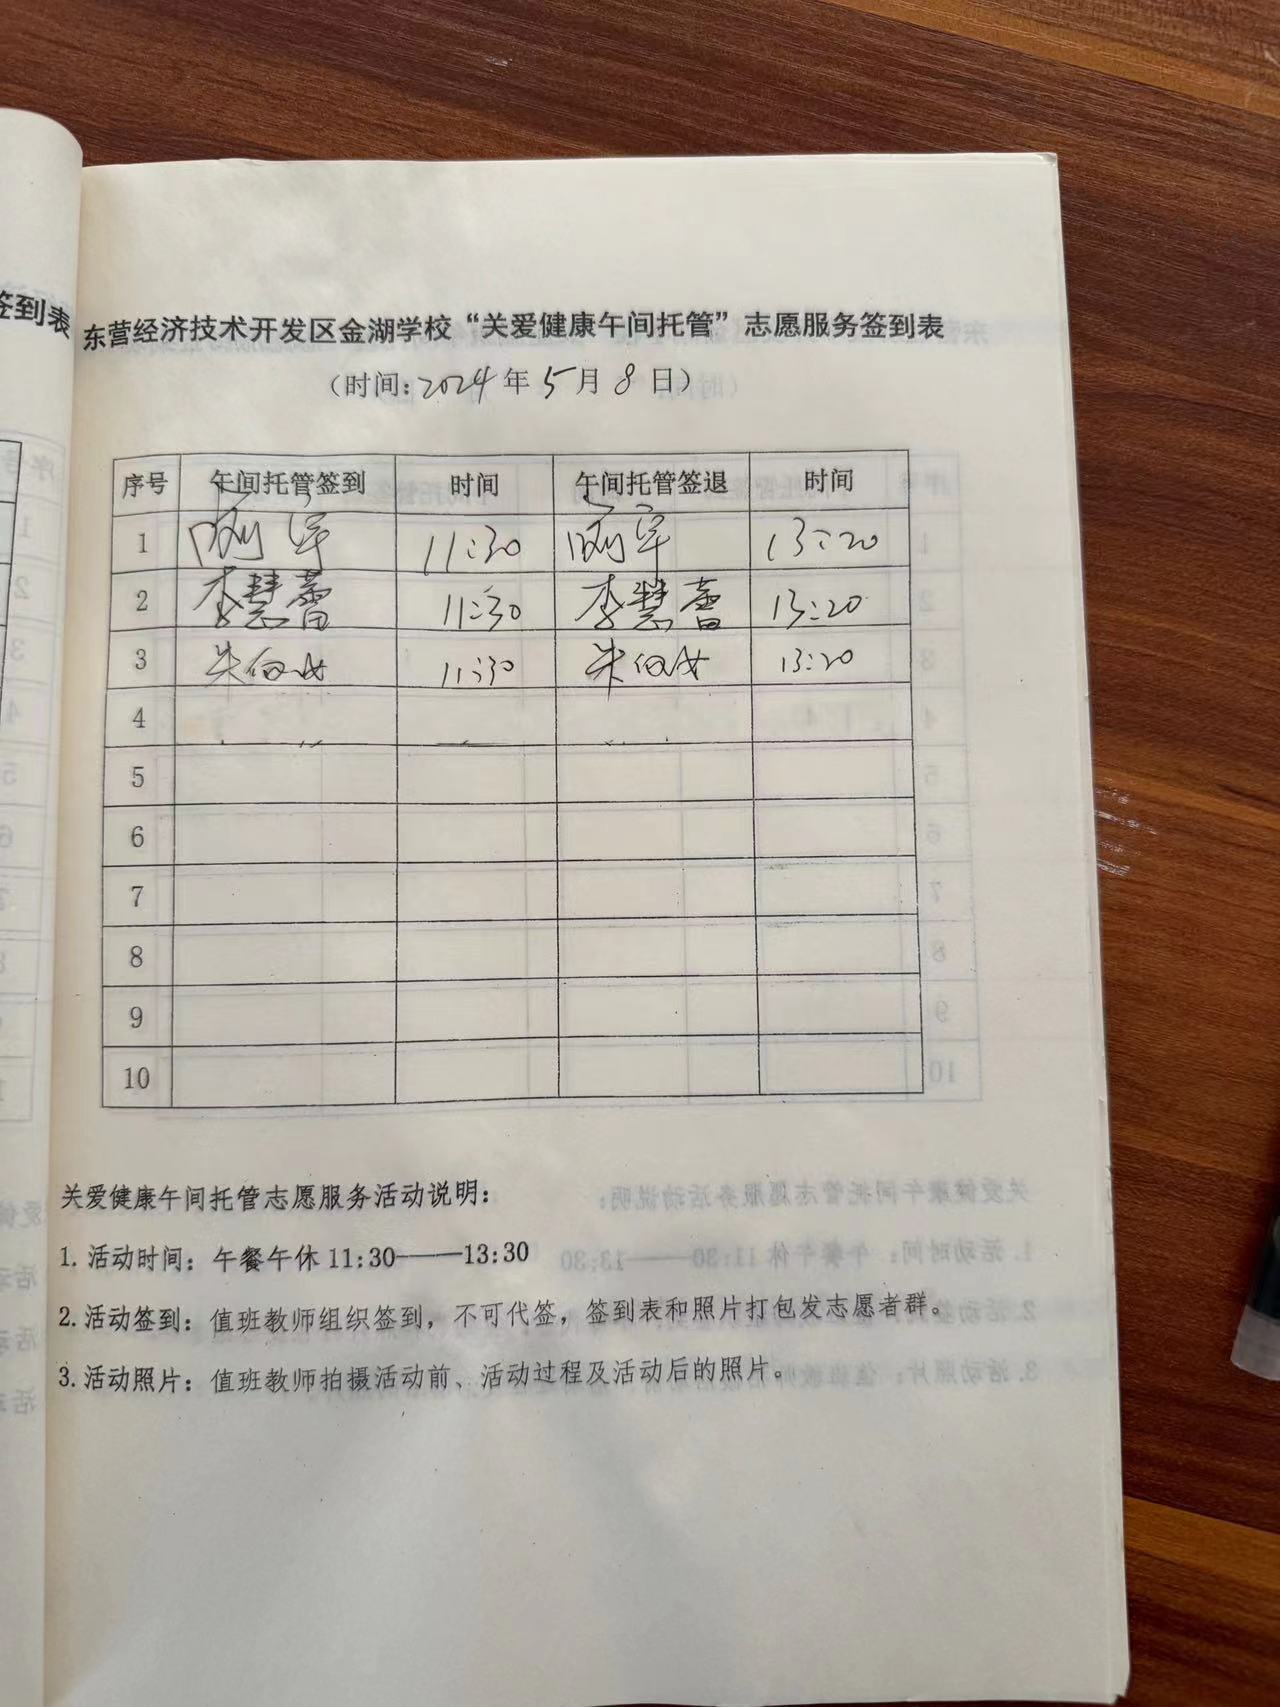 签到表
东营经济技术开发区金湖学校“关爱健康午间托管”志愿服务签到表
（时间:2024年5月8日）
序号 午间托管签到 时间 午间托管签退 时间
1 11:30 13:20
2 李慧蕾 11:30 李慧蕾 13:20
3 朱 11:30 朱 13:20
4
5
6
7
8
9
10
关爱健康午间托管志愿服务活动说明：
1. 活动时间：午餐午休 11:30——13:30
2. 活动签到：值班教师组织签到，不可代签，签到表和照片打包发志愿者群。
3. 活动照片：值班教师拍摄活动前、活动过程及活动后的照片。